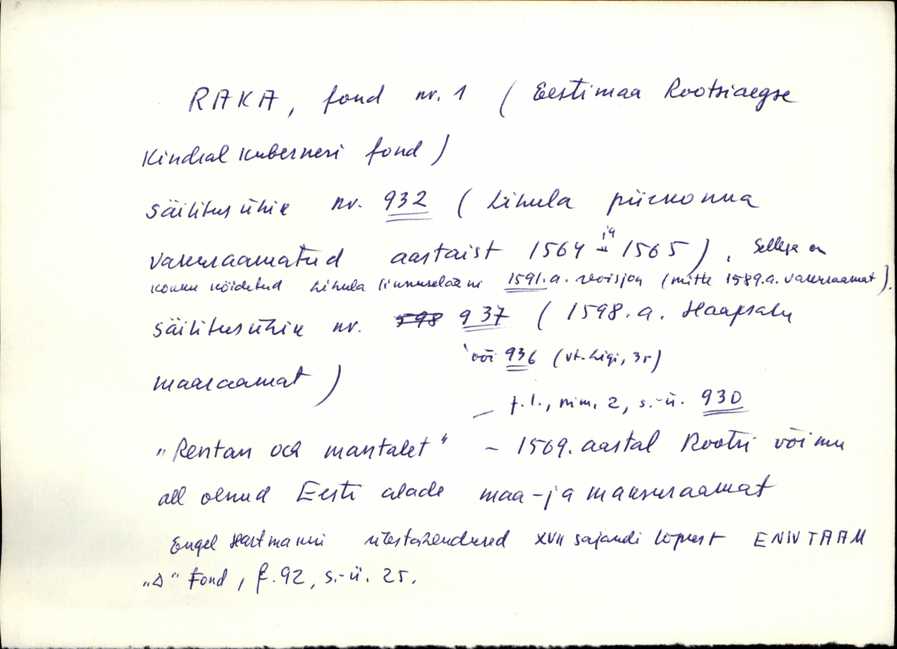 RAKA, fond nr. 1 (Eestimaa Rootsiaegse
Kindral kuberneri fond)
säilitusühik nr. 932 (Lihula piirkonna
vakuraamatud aastaist 1564 ja 1565). Sellega on
kokku köidetud Lihula linnuselääni 1591.a. revisjon (mitte 1589.a. vakuraamat).
säilitusühik nr. 598 937 (1598.a. Haapsalu
või 936 (vt. Ligi, 3r)
maaraamat)
– f.1., nim. 2, s.-ü. 930
"Rentan och mantalet" – 1569. aastal Rootsi võimu
all olnud Eesti alade maa- ja maksuraamat
Engel Hartmanni ülestähendused XVII sajandi lõpust ENSV TAAM
"D" Fond, f. 92, s.-ü. 25.